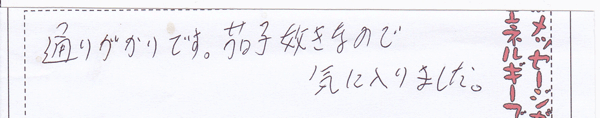 通りがかりです。茄子好きなので
気に入りました。
メッセージが
エネルギーで